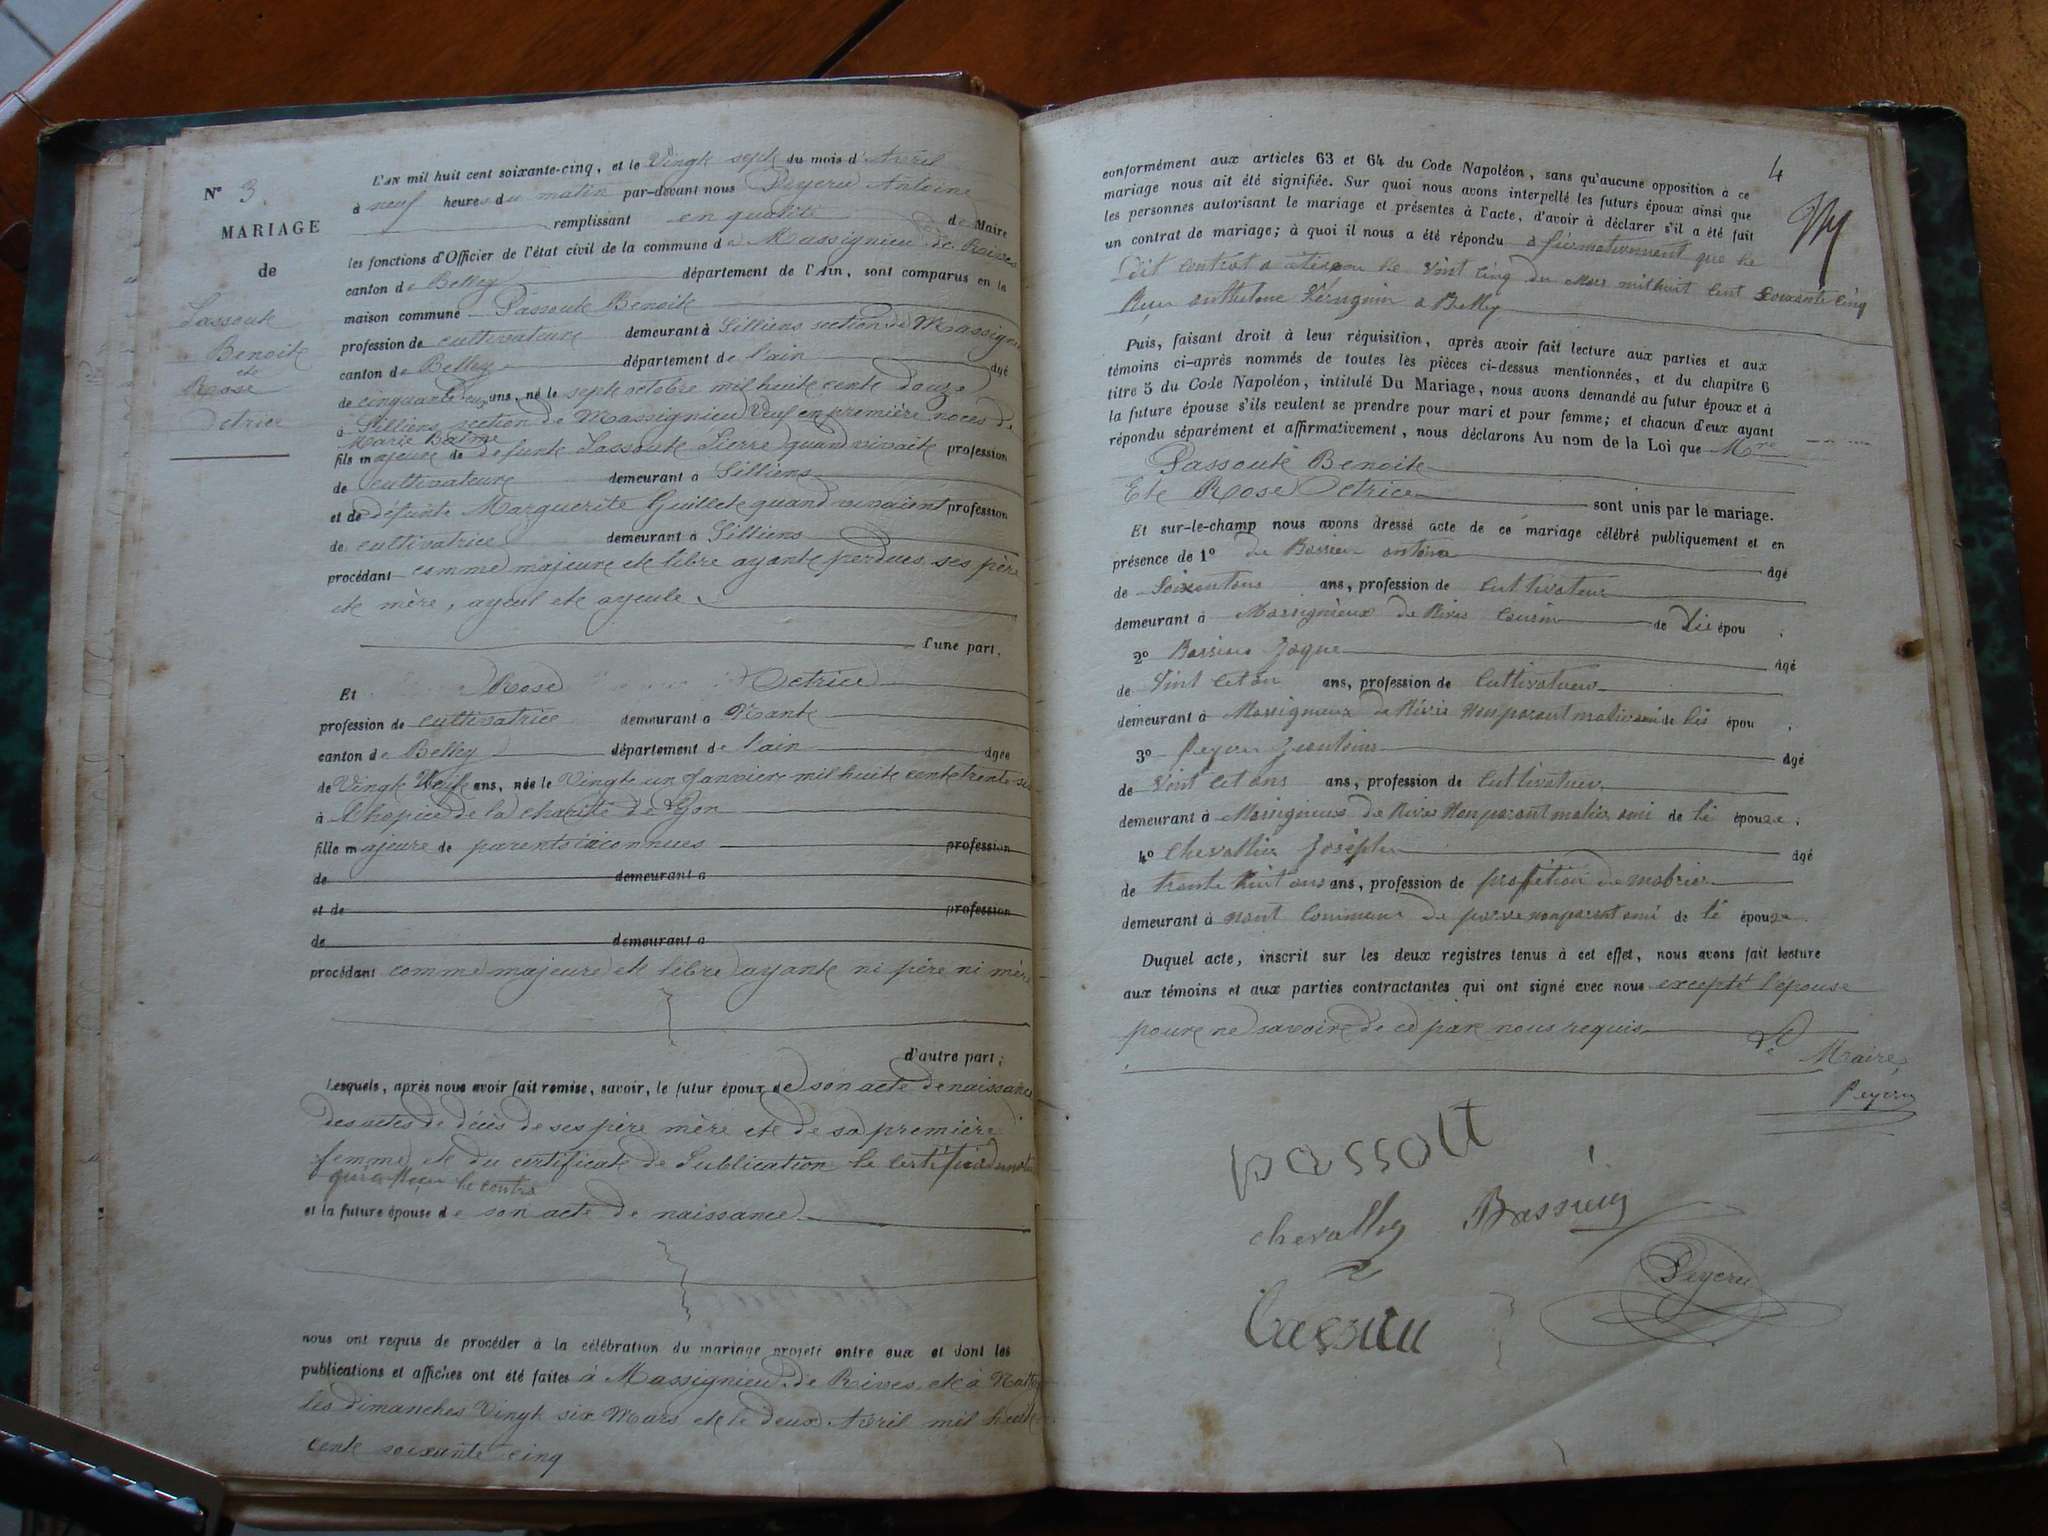 N° 3
MARIAGE
de
Passouk
Benoite
et
Rose
Octrice
L'AN mil huit cent soixante-cinq, et le Vingk sepk du mois d' Avril
à neuf heures du matin par-devant nous Peyeru Antoine
remplissant en qualité de Maire
les fonctions d'Officier de l'état civil de la commune de Massignieu de Raives
canton de Belley département de l'Ain, sont comparus en la
maison commune Passouk Benoite
profession de cultivateure demeurant à Silliens section de Massignieu
canton de Belley département de l'ain âgé
de cinquante deux ans, né le septe octobre mil huite cente douze
à Silliens section de Massignieu Veuf en première noces de
Marie Balme
fils majeure de defunte Passouk Pierre quand vivaite profession
de cultivateure demeurant à Silliens
et de défunte Marguerite Guillete quand vivaient profession
de cultivatrice demeurant à Silliens
procédant comme majeure ete libre ayante perdues ses père
ete mère, ayeul ete ayeule
l'une part,
Et Rose Octrice
profession de cultivatrice demeurant à Nante
canton de Belley département de l'ain âgée
de Vingte Neufe ans, née le Vingte un Janviere mil huite cente trente six
à l'hopice de la charité de Lyon
fille majeure de parents inconnues profession
de demeurant à
et de profession
de demeurant à
procédant comme majeure ete libre ayante ni père ni mère
d'autre part;
Lesquels, après nous avoir fait remise, savoir, le futur époux de son acte de naissance
des actes de décès de ses père mère ete de sa première
femme ete du certificate de Publication le certificat du notaire
qui a Reçu le contra
et la future épouse de son acte de naissance
nous ont requis de procéder à la célébration du mariage projeté entre eux et dont les
publications et affiches ont été faites à Massignieu de Rives ete à Nattages
les dimanches Vingk six Mars ete le deux Avril mil huite
cente soixante cinq
4
conformément aux articles 63 et 64 du Code Napoléon, sans qu'aucune opposition à ce
mariage nous ait été signifiée. Sur quoi nous avons interpellé les futurs époux ainsi que
les personnes autorisant le mariage et présentes à l'acte, d'avoir à déclarer s'il a été fait
un contrat de mariage; à quoi il nous a été répondu afirmativement que le
dit contrat a été le vint cinq du Mars mil huit cent soixante cinq
a Belley
Puis, faisant droit à leur réquisition, après avoir fait lecture aux parties et aux
témoins ci-après nommés de toutes les pièces ci-dessus mentionnées, et du chapitre 6
titre 5 du Code Napoléon, intitulé Du Mariage, nous avons demandé au futur époux et à
la future épouse s'ils veulent se prendre pour mari et pour femme; et chacun d'eux ayant
répondu séparément et affirmativement, nous déclarons Au nom de la Loi que M
Passoute Benoite
Ete Rose Octrice sont unis par le mariage.
Et sur-le-champ nous avons dressé acte de ce mariage célébré publiquement et en
présence de 1° Bassieu antoine âgé
de Soixentans ans, profession de Cultivateur
demeurant à Massignieux de Rives Cousin de l'es épou
2° Bassieu Jaque âgé
de Vint Cet an ans, profession de Cultivateur
demeurant à Massignieux de Rives Non parent de l'es épou
3° Peyeru âgé
de Vint Cet ans ans, profession de Cultivateur
demeurant à Massignieux de Rives Non parent ami de lé épouse;
4° Chevallier Joseph âgé
de trante huit ans ans, profession de profetion de
demeurant à nant Commune de parve non parent ami de lé épouse
Duquel acte, inscrit sur les deux registres tenus à cet effet, nous avons fait lecture
aux témoins et aux parties contractantes qui ont signé avec nous excepté l'épouse
poure ne savoire de ce pare nous requis Le
Maire,
Peyeru
passott
chevallier Bassieu
Peyeru
Bassieu